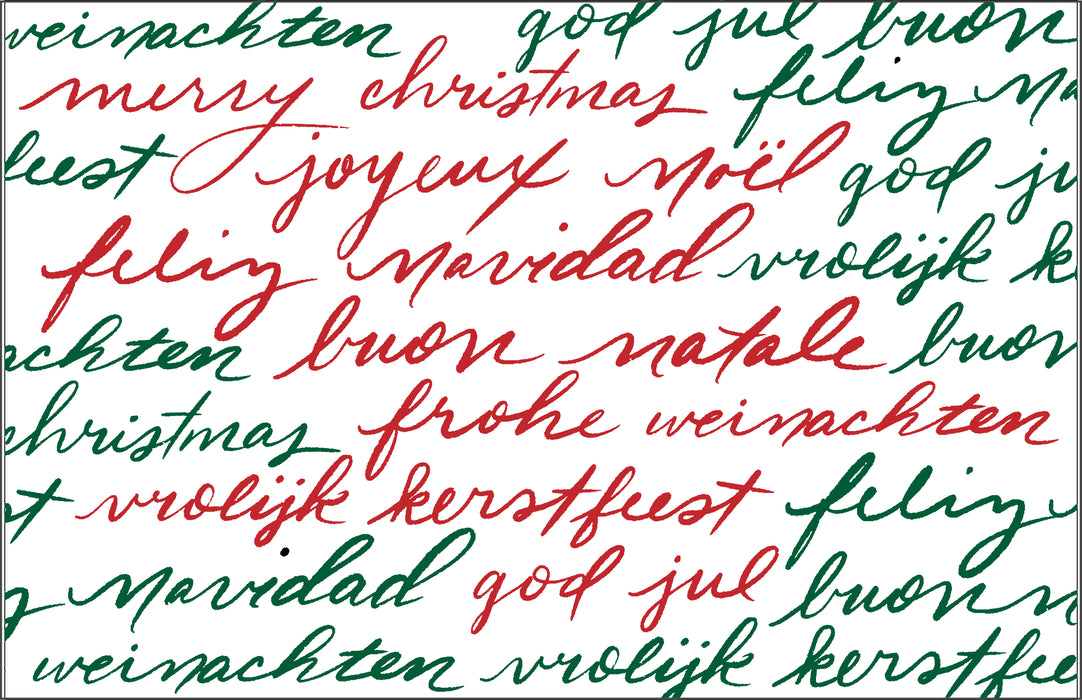 weinachten god jul buon
merry christmas feliz na
feest joyeux noël god ju
feliz navidad vrolijk k
achten buon natale buon
christmas frohe weinachten
st vrolijk kerstfeest feliz
z navidad god jul buon n
weinachten vrolijk kerstfee